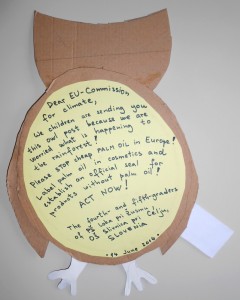 Dear EU-Commission
for climate,
We children are sending you
this owl post because we are
worried what is happening to
the rainforest!
Please STOP cheap PALM OIL in Europe!
Label palm oil in cosmetics and
establish an official seal for
products without palm oil!
ACT NOW!
The fourth- and fifth-graders
of pš Loka pri Žusmu,
OŠ Slivnica pri Celju,
SLOVENIA
14 June 2019